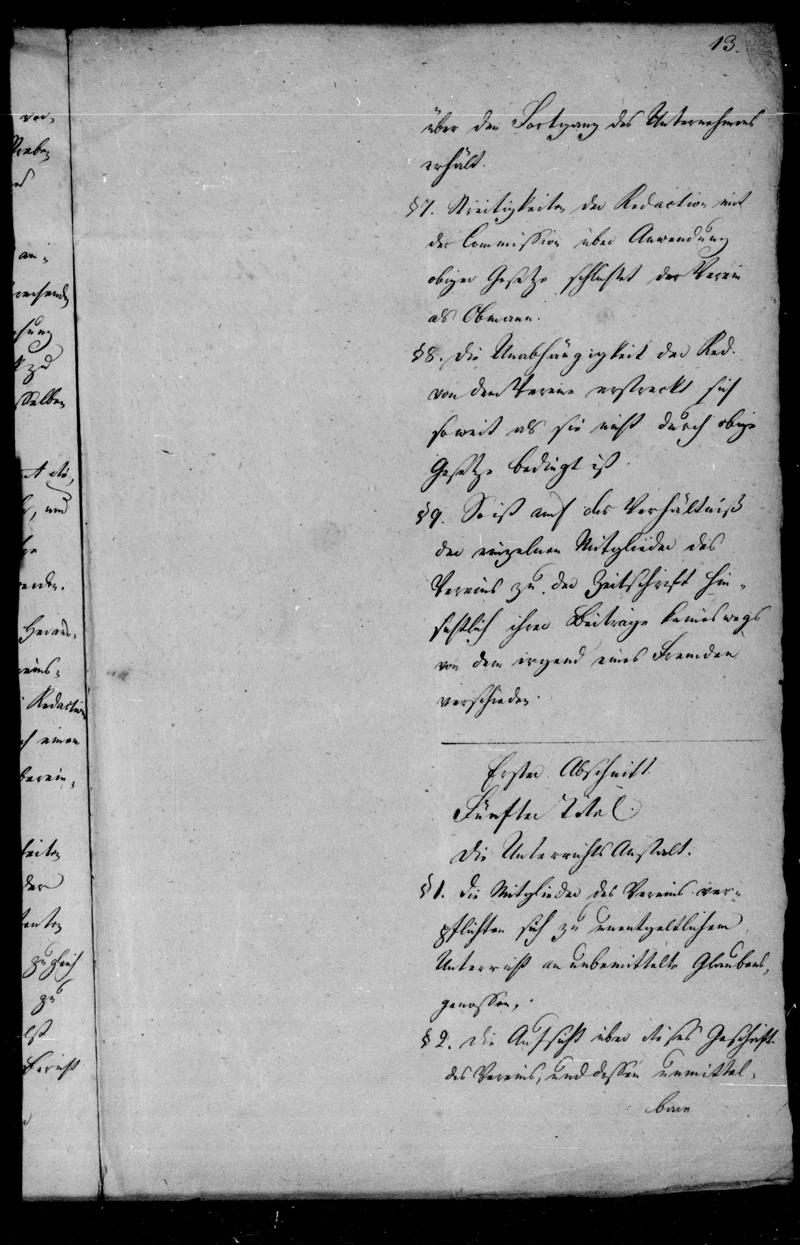 13.
über den Fortgang des Unternehmens
erhält.
§7. Streitigkeiten der Redaction mit
der Commission über Anwendung
obiger Gesetze schlichtet der Verein
als Obmann.
§8. Die Unabhängigkeit der Red.
von dem Vereine erstreckt sich
soweit als sie nicht durch obige
Gesetze bedingt ist.
§9. So ist auch das Verhältniß
der einzelnen Mitglieder des
Vereins zu der Zeitschrift hin-
sichtlich ihrer Beiträge keineswegs
von dem irgend eines Fremden
verschieden.
Erster Abschnitt
Fünfter Titel.
Die Unterrichts Anstalt.
§1. Die Mitglieder des Vereins ver-
pflichten sich zu unentgeltlichem
Unterricht an unbemittelte Glaubens,
genossen,
§2. Die Aufsicht über dieses Geschäft
des Vereins, und dessen unmittel-
bare
vor,
an-
zu
selben
, und
Heraus,
Redaction
einen
verein,
der
zugleich
zu
Bericht